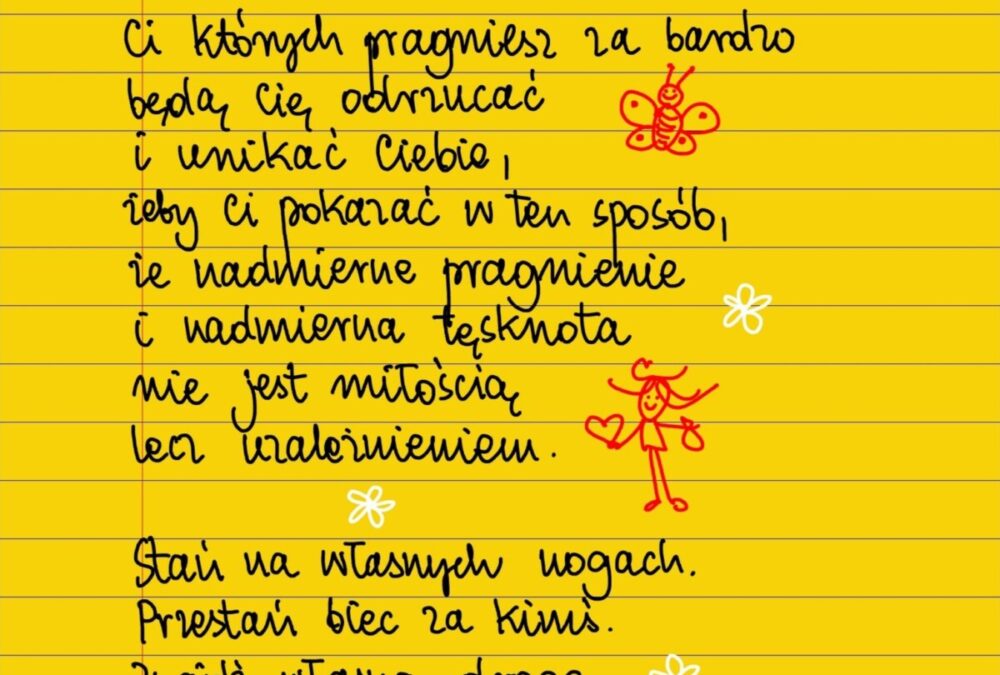 Ci których pragniesz za bardzo
będą Cię odrzucać
i unikać Ciebie,
żeby Ci pokazać w ten sposób,
że nadmierne pragnienie
i nadmierna tęsknota
nie jest miłością
lecz uzależnieniem.
Stań na własnych nogach.
Przestań biec za kimś.